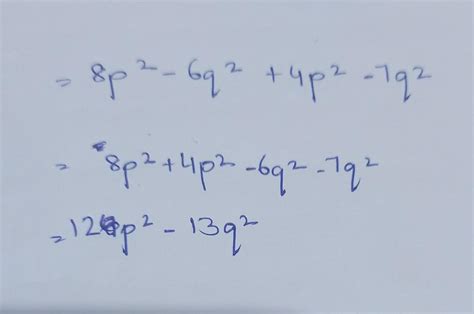 = 8p² - 6q² + 4p² - 7q²
= 8p² + 4p² - 6q² - 7q²
= 12p² - 13q²